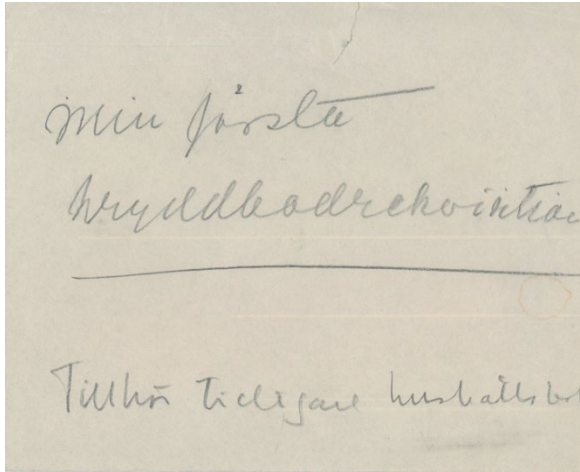 Min första
kryddbodrekvisition
Tillhör tidigare hushålls